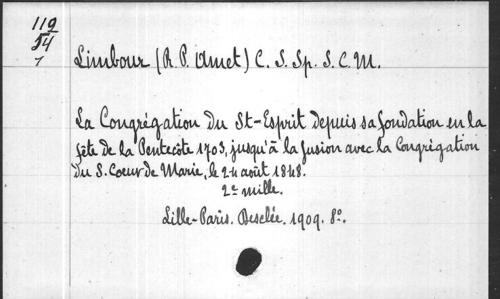 119
54
7
Limbour (R. P. Amet) C. S. Sp. S. C. M.
La Congrégation du St-Esprit depuis sa fondation en la
fête de la Pentecôte 1703, jusqu'à la fusion avec la Congrégation
du S. Coeur de Marie, le 24 août 1848.
2e mille.
Lille-Paris. Desclée. 1909. 8o.